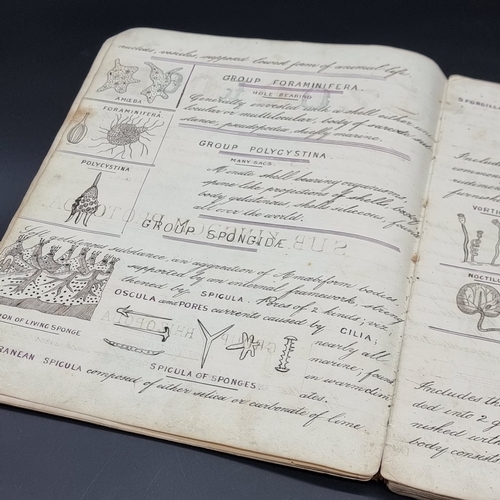 nucleus, vacuoles, supposed lowest form of animal life.
AMEBA
GROUP FORAMINIFERA.
HOLE BEARING
FORAMINIFERA
Generally invested with a shell either
locular or multilocular, body of sarcode
stance, pseudopodia, chiefly marine.
GROUP POLYCYSTINA
MANY SACS
POLYCYSTINA
Minute shell bearing organisms,
spine like projections of shells, body
body gelatinous, shells siliceous, found
all over the world.
GROUP SPONGIDÆ.
Soft gelatinous substance, an aggregation of Amœbiform bodies,
supported by an internal framework, strong
thened by SPICULA. Pores of 2 kinds; viz.
OSCULA and PORES currents caused by CILIA,
nearly all
marine; found
in warm clim
ates.
ON OF LIVING SPONGE
SPICULA OF SPONGES.
RANEAN SPICULA composed of either silica or carbonate of lime.
SPONGI
Inclu
comm
furnish
VORTI
NOCTIL
Includes th
ded into 2 g
nished with
body consist